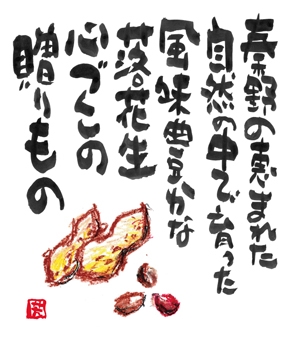 秦野の恵まれた
自然の中で育った
風味豊かな
落花生
心づくしの
贈りもの